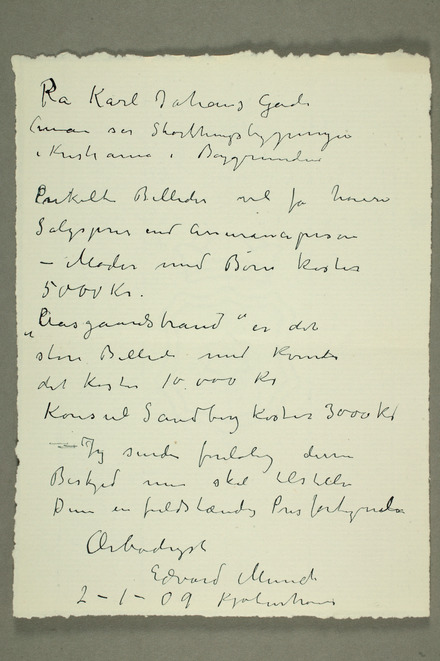 Paa Karl Johans Gade
(man ser Storthingsbygningen
i Kristiania i Baggrunden
Enkelte Billeder vil jo have
Salgspris end Assuranceprisen
– Moder med Børn koster
5000 Kr.
„Aasgaardstrand" er det
store Billede med
det koster 10.000 Kr
Konsul Sandberg koster 3000 Kr
Jeg sender foreløbig denne
Beskjed men skal tilstille
Dem en fuldstændig Prisfortegnelse
Ærbødigst
Edvard Munch
2–1–09 Kjøbenhavn